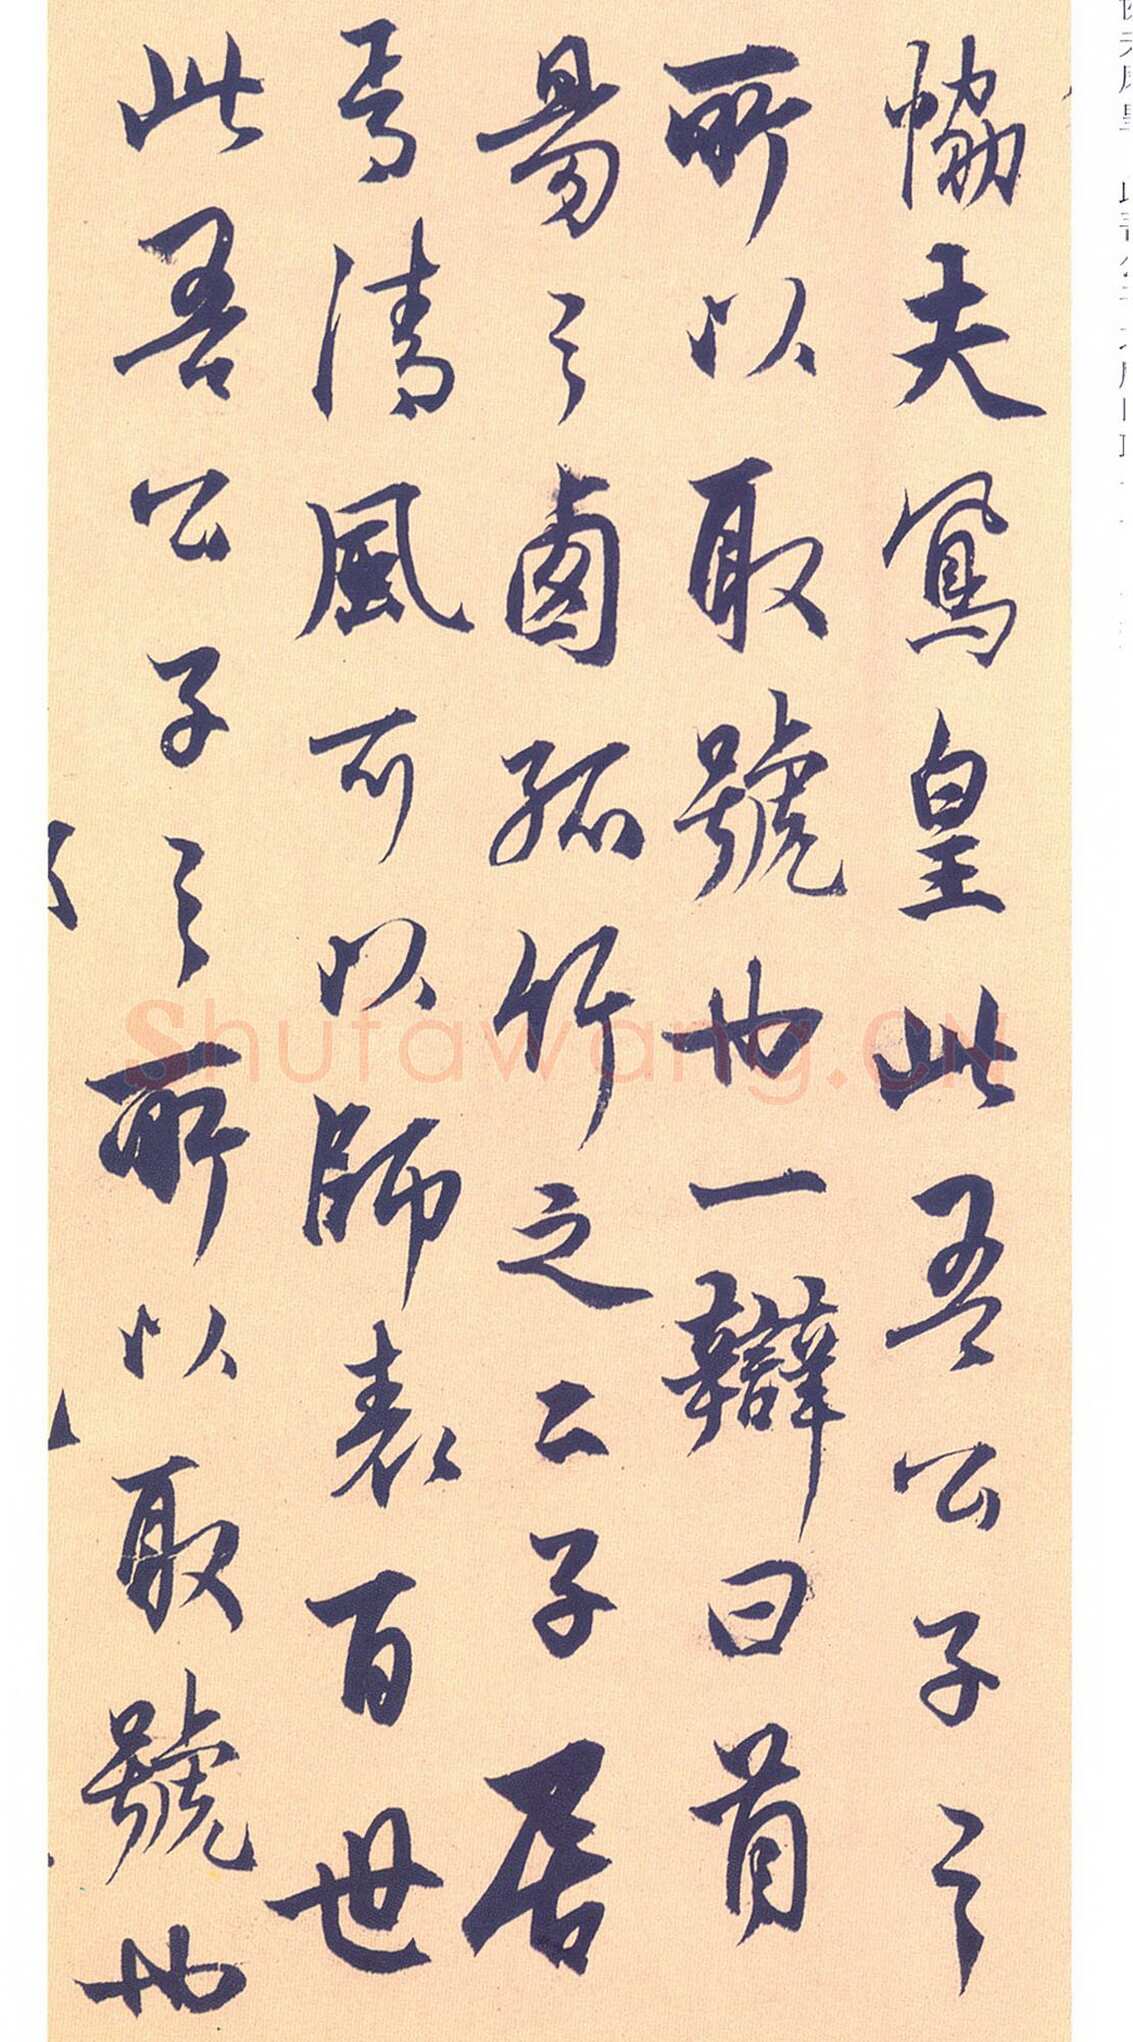 協夫鳳皇此吾公子之
所以取號也一辯曰首
昜之西孤竹之二子居
焉清風可以師表百世
此吾公子之所以取號也
Shufawang.CN